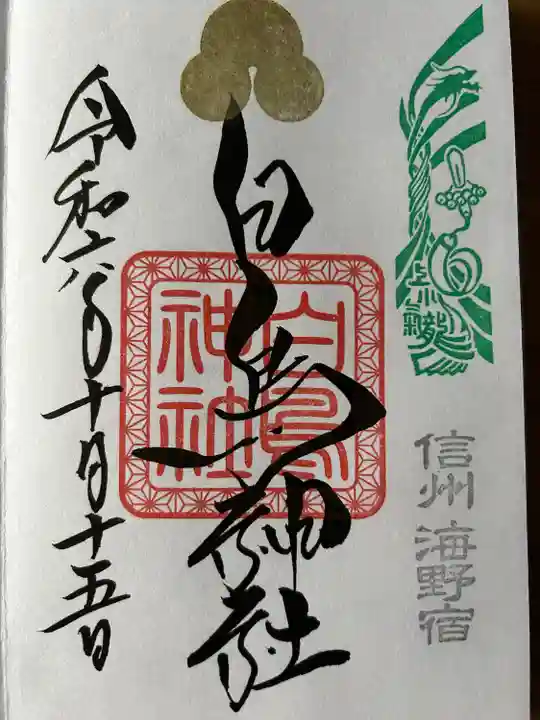 上小龍
信州 海野宿
白鳥神社
白鳥
神社
令和六年十月十五日